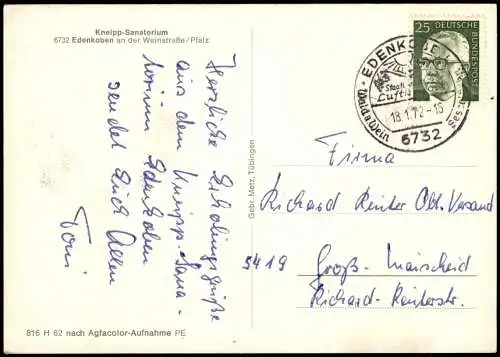 Kneipp-Sanatorium
6732 Edenkoben an der Weinstraße/Pfalz
Herzliche Erholungsgrüße
aus dem Kneipp-Sana-
torium Edenkoben
sendet Euch Allen
Toni
Gebr. Metz, Tübingen
816 H 62 nach Agfacolor-Aufnahme PE
25
DEUTSCHE
BUNDESPOST
EDENKOBEN
Staatl.
Luftk
18.1.72-15
Wald u Wein
6732
Firma
Richard Reuter Obt. Versand
5419 Groß-Maischeid
Richard-Reuterstr.